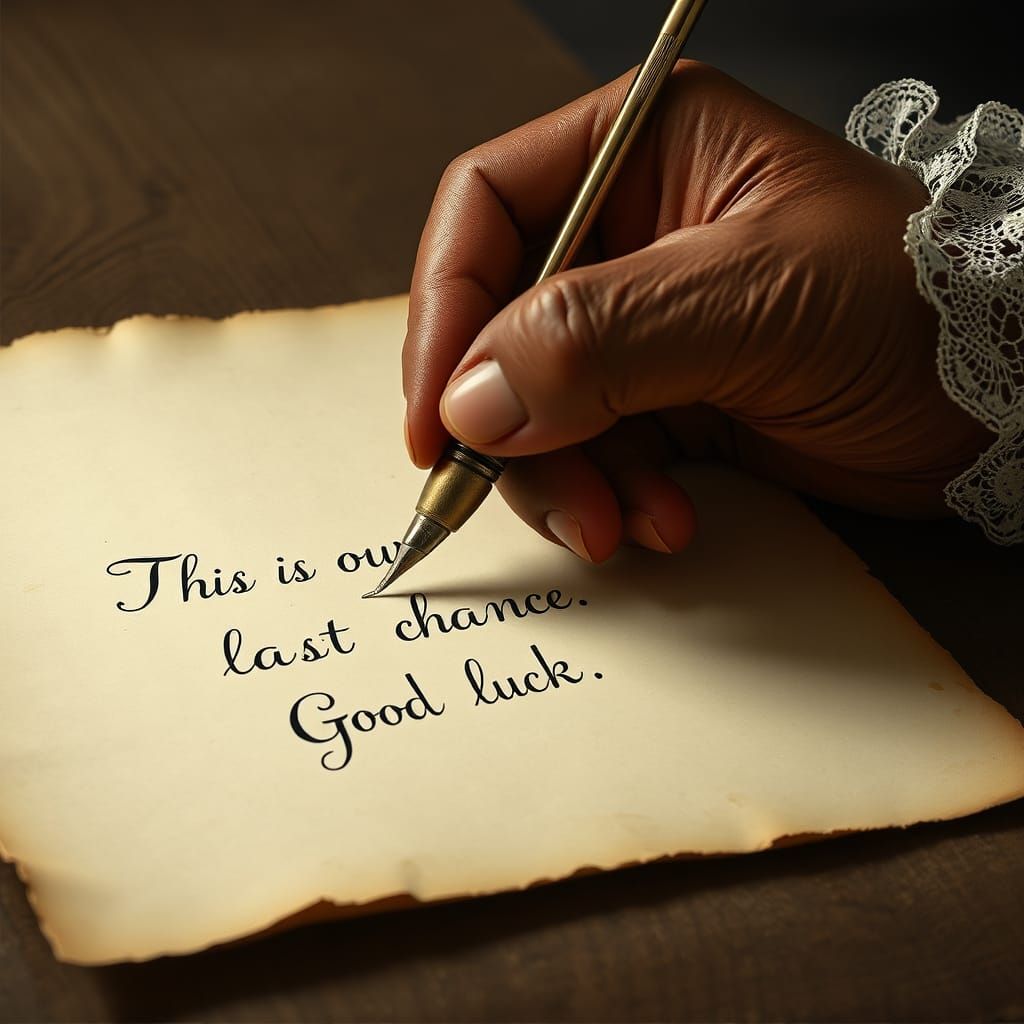 This is ou
last chance.
Good luck.